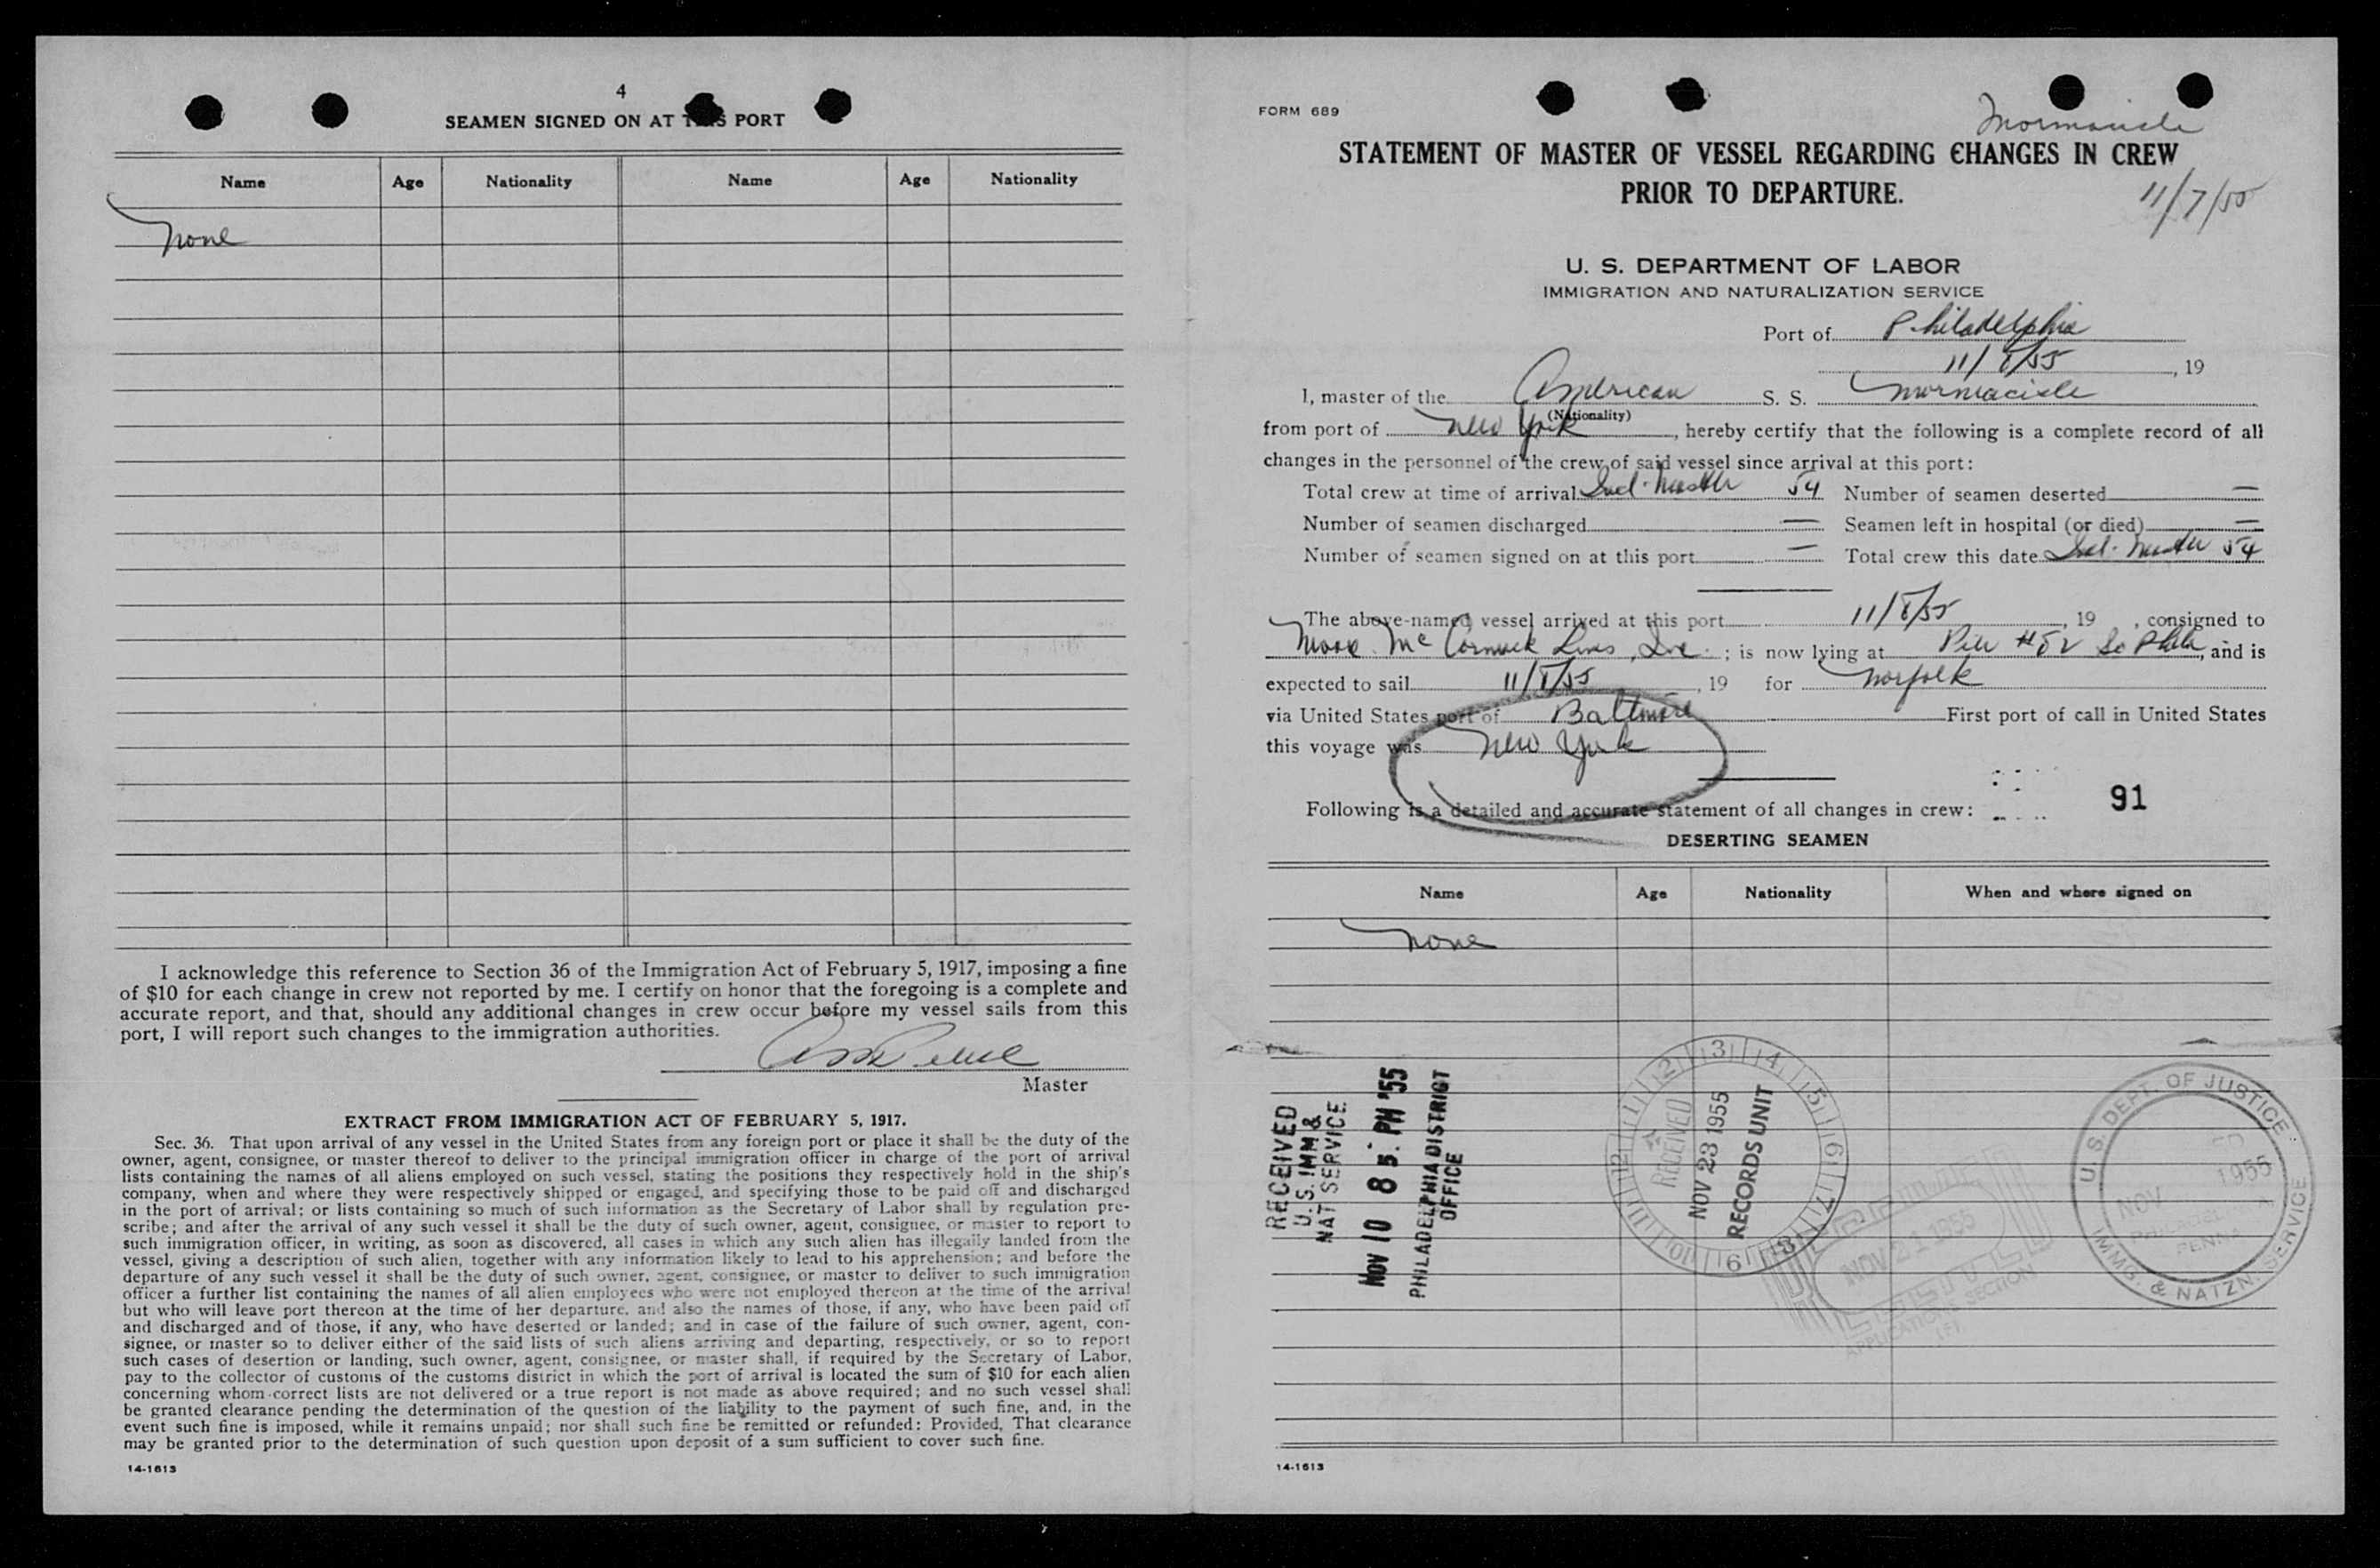 4
SEAMEN SIGNED ON AT THIS PORT
Name Age Nationality Name Age Nationality
None
I acknowledge this reference to Section 36 of the Immigration Act of February 5, 1917, imposing a fine
of $10 for each change in crew not reported by me. I certify on honor that the foregoing is a complete and
accurate report, and that, should any additional changes in crew occur before my vessel sails from this
port, I will report such changes to the immigration authorities.
Master
EXTRACT FROM IMMIGRATION ACT OF FEBRUARY 5, 1917.
Sec. 36. That upon arrival of any vessel in the United States from any foreign port or place it shall be the duty of the
owner, agent, consignee, or master thereof to deliver to the principal immigration officer in charge of the port of arrival
lists containing the names of all aliens employed on such vessel, stating the positions they respectively hold in the ship's
company, when and where they were respectively shipped or engaged, and specifying those to be paid off and discharged
in the port of arrival; or lists containing so much of such information as the Secretary of Labor shall by regulation pre-
scribe; and after the arrival of any such vessel it shall be the duty of such owner, agent, consignee, or master to report to
such immigration officer, in writing, as soon as discovered, all cases in which any such alien has illegally landed from the
vessel, giving a description of such alien, together with any information likely to lead to his apprehension; and before the
departure of any such vessel it shall be the duty of such owner, agent, consignee, or master to deliver to such immigration
officer a further list containing the names of all alien employees who were not employed thereon at the time of the arrival
but who will leave port thereon at the time of her departure, and also the names of those, if any, who have been paid off
and discharged and of those, if any, who have deserted or landed; and in case of the failure of such owner, agent, con-
signee, or master so to deliver either of the said lists of such aliens arriving and departing, respectively, or so to report
such cases of desertion or landing, such owner, agent, consignee, or master shall, if required by the Secretary of Labor,
pay to the collector of customs of the customs district in which the port of arrival is located the sum of $10 for each alien
concerning whom correct lists are not delivered or a true report is not made as above required; and no such vessel shall
be granted clearance pending the determination of the question of the liability to the payment of such fine, and, in the
event such fine is imposed, while it remains unpaid; nor shall such fine be remitted or refunded: Provided, That clearance
may be granted prior to the determination of such question upon deposit of a sum sufficient to cover such fine.
14-1613
FORM 689
Mormacisle
STATEMENT OF MASTER OF VESSEL REGARDING CHANGES IN CREW
PRIOR TO DEPARTURE.
11/7/55
U. S. DEPARTMENT OF LABOR
IMMIGRATION AND NATURALIZATION SERVICE
Port of Philadelphia
11/8/55, 19
I, master of the American S. S. Mormacisle
(Nationality)
from port of New York, hereby certify that the following is a complete record of all
changes in the personnel of the crew of said vessel since arrival at this port:
Total crew at time of arrival Incl. Master 54 Number of seamen deserted —
Number of seamen discharged — Seamen left in hospital (or died) —
Number of seamen signed on at this port — Total crew this date Incl. Master 54
The above-named vessel arrived at this port 11/8/55, 19 , consigned to
Moore McCormack Lines, Inc.; is now lying at Pier #82 So Phila, and is
expected to sail 11/8/55, 19 for Norfolk
via United States port of Baltimore First port of call in United States
this voyage was New York
Following is a detailed and accurate statement of all changes in crew:
91
DESERTING SEAMEN
Name Age Nationality When and where signed on
None
RECEIVED
U.S. IMM &
NAT SERVICE
NOV 10 8 5. PM '55
PHILADELPHIA DISTRICT
OFFICE
RECEIVED
NOV 23 1955
RECORDS UNIT
1 2 3 4 5 6 7 8 9 10 11 12
NOV 21 1955
APPLICATIONS SECTION
(F)
U. S. DEPT. OF JUSTICE
NOV 1955
PENNA
IMMG. & NATZN. SERVICE
14-1613